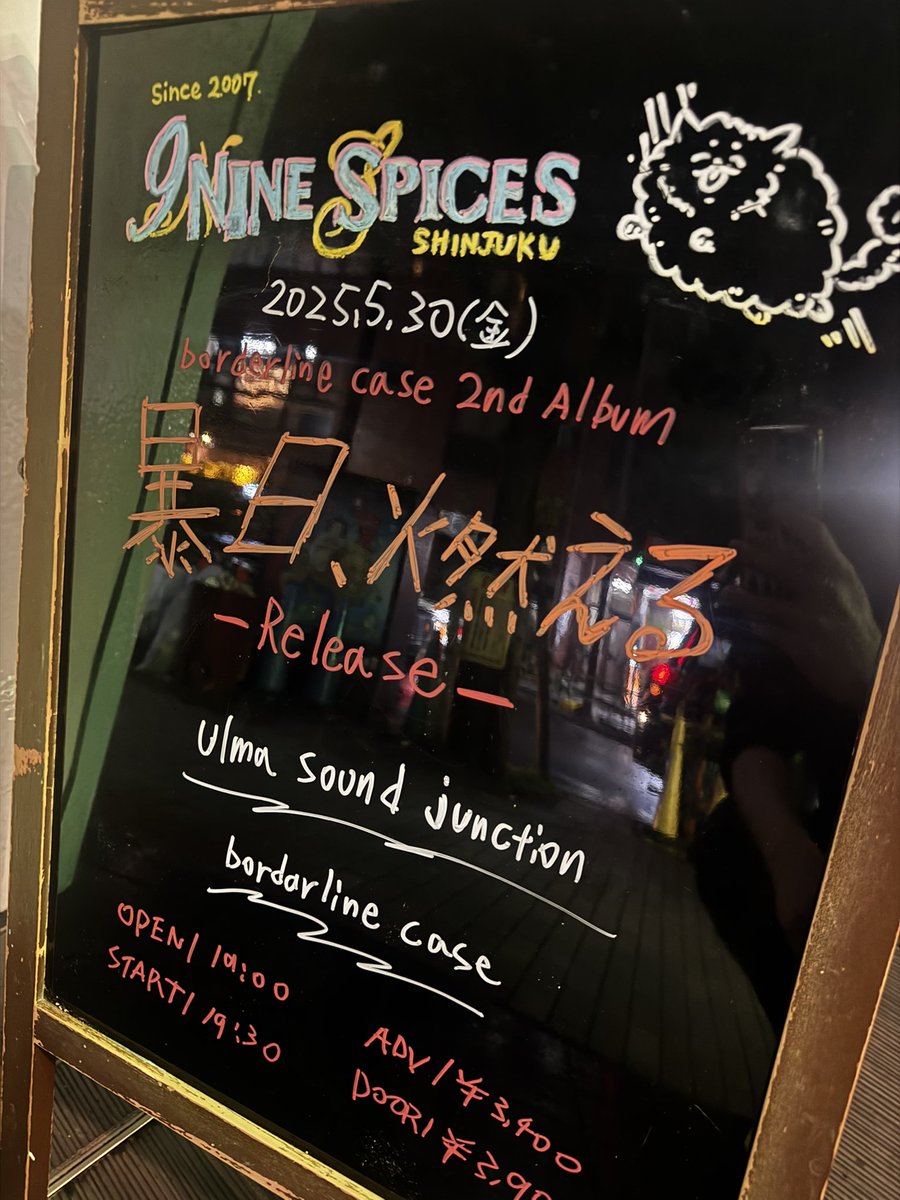 Since 2007.
9NINE SPICES
SHINJUKU
2025.5.30(金)
borderline case 2nd Album
暴日、燃える
-Release-
Ulma sound junction
bordarline case
OPEN/ 19:00
START/ 19:30
ADV/¥3,400
DOOR/¥3,90